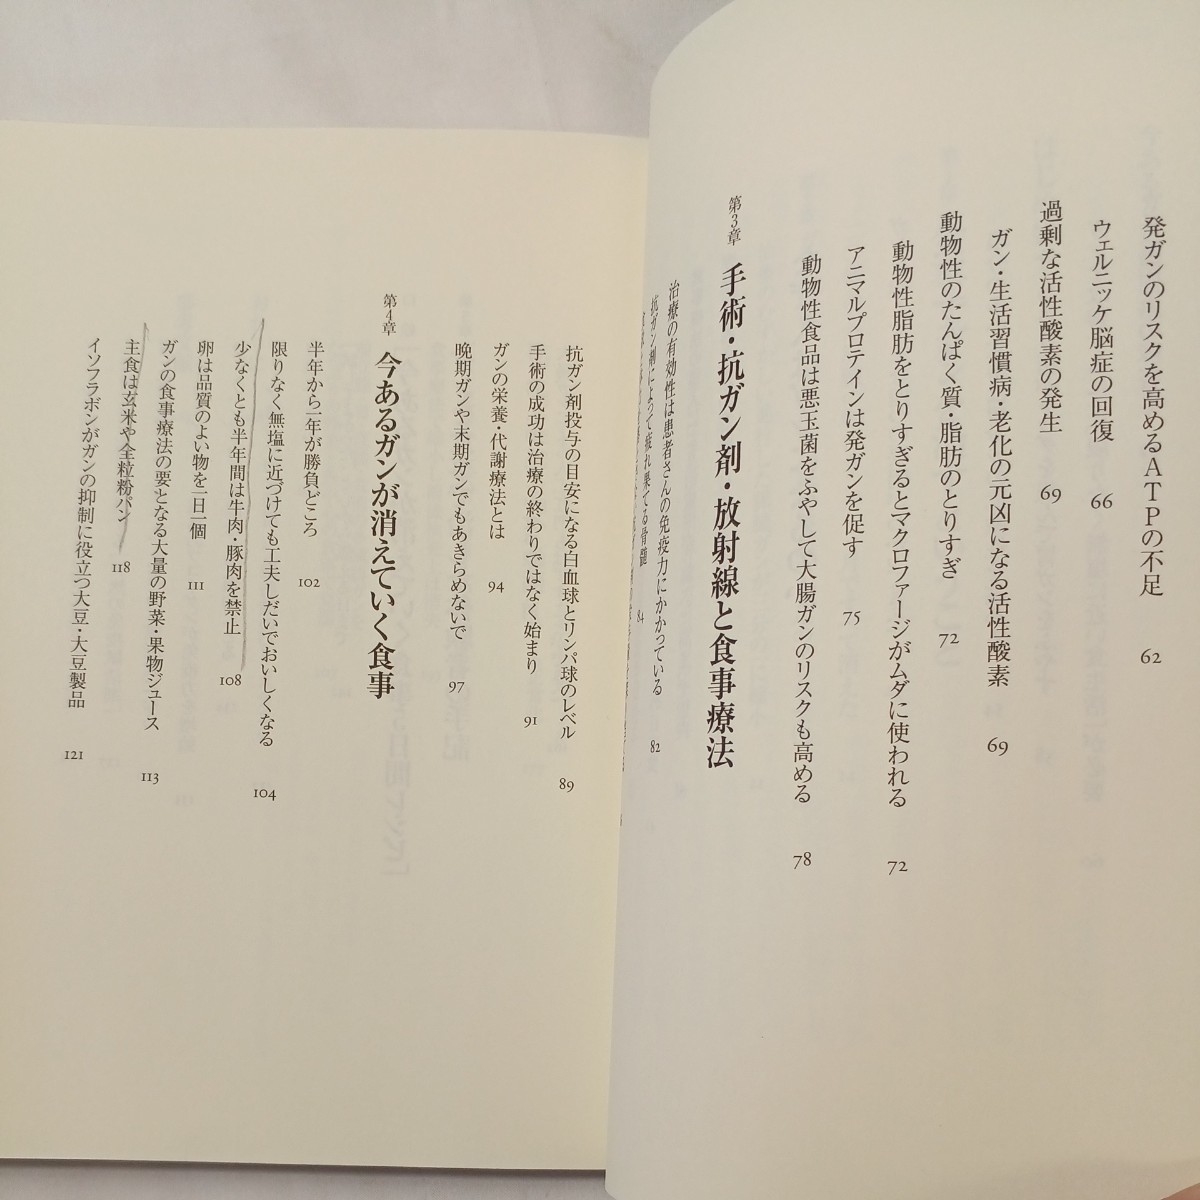 発ガンのリスクを高めるATPの不足 62
ウェルニッケ脳症の回復 66
過剰な活性酸素の発生 69
ガン・生活習慣病・老化の元凶になる活性酸素 69
動物性のたんぱく質・脂肪のとりすぎ 72
動物性脂肪をとりすぎるとマクロファージがムダに使われる 72
アニマルプロテインは発ガンを促す 75
動物性食品は悪玉菌をふやして大腸ガンのリスクも高める 78
第3章 手術・抗ガン剤・放射線と食事療法
治療の有効性は患者さんの免疫力にかかっている 82
抗ガン剤によって疲れ果てる骨髄 84
抗ガン剤投与の目安になる白血球とリンパ球のレベル 89
手術の成功は治療の終わりではなく始まり 91
ガンの栄養・代謝療法とは 94
晩期ガンや末期ガンでもあきらめないで 97
第4章 今あるガンが消えていく食事
半年から一年が勝負どころ 102
限りなく無塩に近づけても工夫しだいでおいしくなる 104
少なくとも半年間は牛肉・豚肉を禁止 108
卵は品質のよい物を一日一個 111
ガンの食事療法の要となる大量の野菜・果物ジュース 113
主食は玄米や全粒粉パン 118
イソフラボンがガンの抑制に役立つ大豆・大豆製品 121